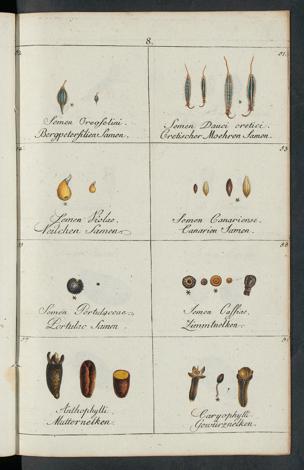 8.
51.
Semen Oreoselini.
Bergpetersilien Samen.
Semen Dauci cretici.
Cretischer Moehren Samen.
53
Semen Violae.
Veilchen Samen.
Semen Canariense.
Canarien Samen.
Semen Portulaceae.
Portulac Samen.
Semen Cassiae.
Zimmtnelken.
Anthophylli.
Mutternelken.
Caryophylli.
Gewürznelken.